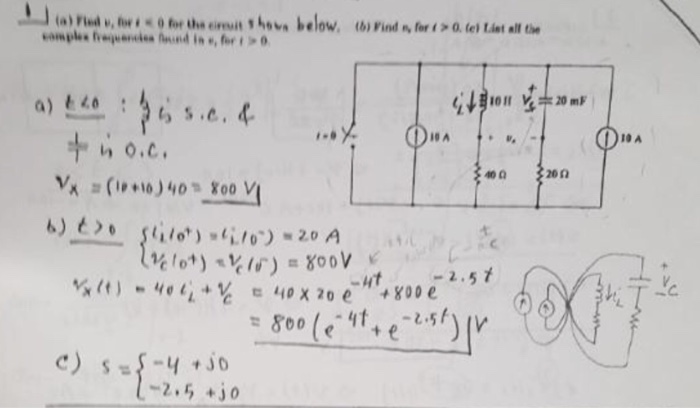 1) (a) Find vₓ for t < 0 for the circuit shown below. (b) Find vₓ for t > 0. (c) List all the
complex frequencies found in vₓ for t > 0.
a) t<0 : is s.c. &
is o.c.
Vx = (10+10)40 = 800 V
b) t>0 { iL(0+) = iL(0-) = 20 A
Vc(0+) = Vc(0-) = 800V
Vx(t) = 40 iL + Vc = 40 x 20 e^-4t + 800 e^-2.5t
= 800 (e^-4t + e^-2.5t) V
c) s = { -4 + j0
-2.5 + j0
t=0
10 A
iL
10 H
+
Vc
-
20 mF
+ vₓ -
40 Ω
20 Ω
10 A
iL
+
Vc
-